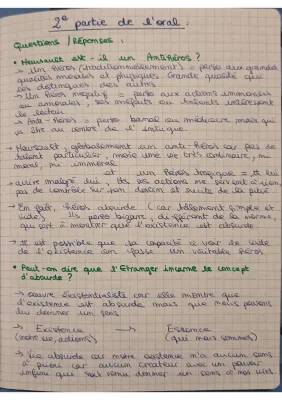 2e partie de l'oral.
Questions / Réponses :
• Meursault est-il un AntiHéros ?
→ Un héros (traditionnellement) = perso aux grandes
qualités morales et physiques. Grande qualité qui
les distingues des autres
→ Un héros négatif = perso aux actions immorales
ou amorales, ses méfaits ou travers intéressent
le lecteur
→ Anti-héros = perso banal ou médiocre mais qui
va être au centre de l'intrigue.
→ Meursault, globalement un anti-héros car pas de
talent particulier, mène une vie très ordinaire, ni
moral, ni immoral
et un héros tragique =
malgré lui, ses actions ne servent à rien,
pas de contrôle sur son destin et
→ En fait, héros absurde (car tellement simple et
vide) perso bizarre, différent de la norme,
qui sert à montrer que l'existence est absurde
→ Il est possible que sa capacité à voir le vide
de l'existence en fasse un véritable héros
• Peut-on dire que l'Etranger incarne le concept
d'absurde ?
→ œuvre existentialiste car elle montre que
l'existence est absurde mais que nous pouvons
lui donner un sens
→ Existence → Essence
(notre vie, actions) (qui nous sommes)
→ Vie absurde car notre existence n'a aucun sens
à priori car aucun créateur avec un pouvoir
infini que soit venu donner un sens à nos vies.